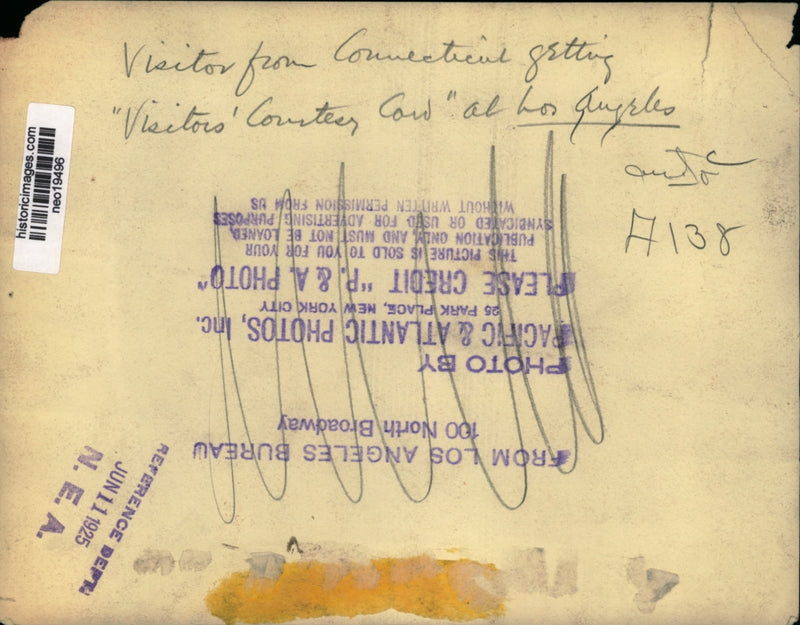 Visitor from Connecticut getting
"Visitors' Courtesy Card" at Los Angeles
auto
A138
historicimages.com
neo19496
FROM LOS ANGELES BUREAU
100 North Broadway
PHOTO BY
PACIFIC & ATLANTIC PHOTOS, Inc.
25 PARK PLACE, NEW YORK CITY
PLEASE CREDIT "P. & A. PHOTO"
THIS PICTURE IS SOLD TO YOU FOR YOUR
PUBLICATION ONLY AND MUST NOT BE LOANED,
SYNDICATED OR USED FOR ADVERTISING PURPOSES
WITHOUT WRITTEN PERMISSION FROM US
REFERENCE DEPT.
JUN 11 1925
N. E. A.